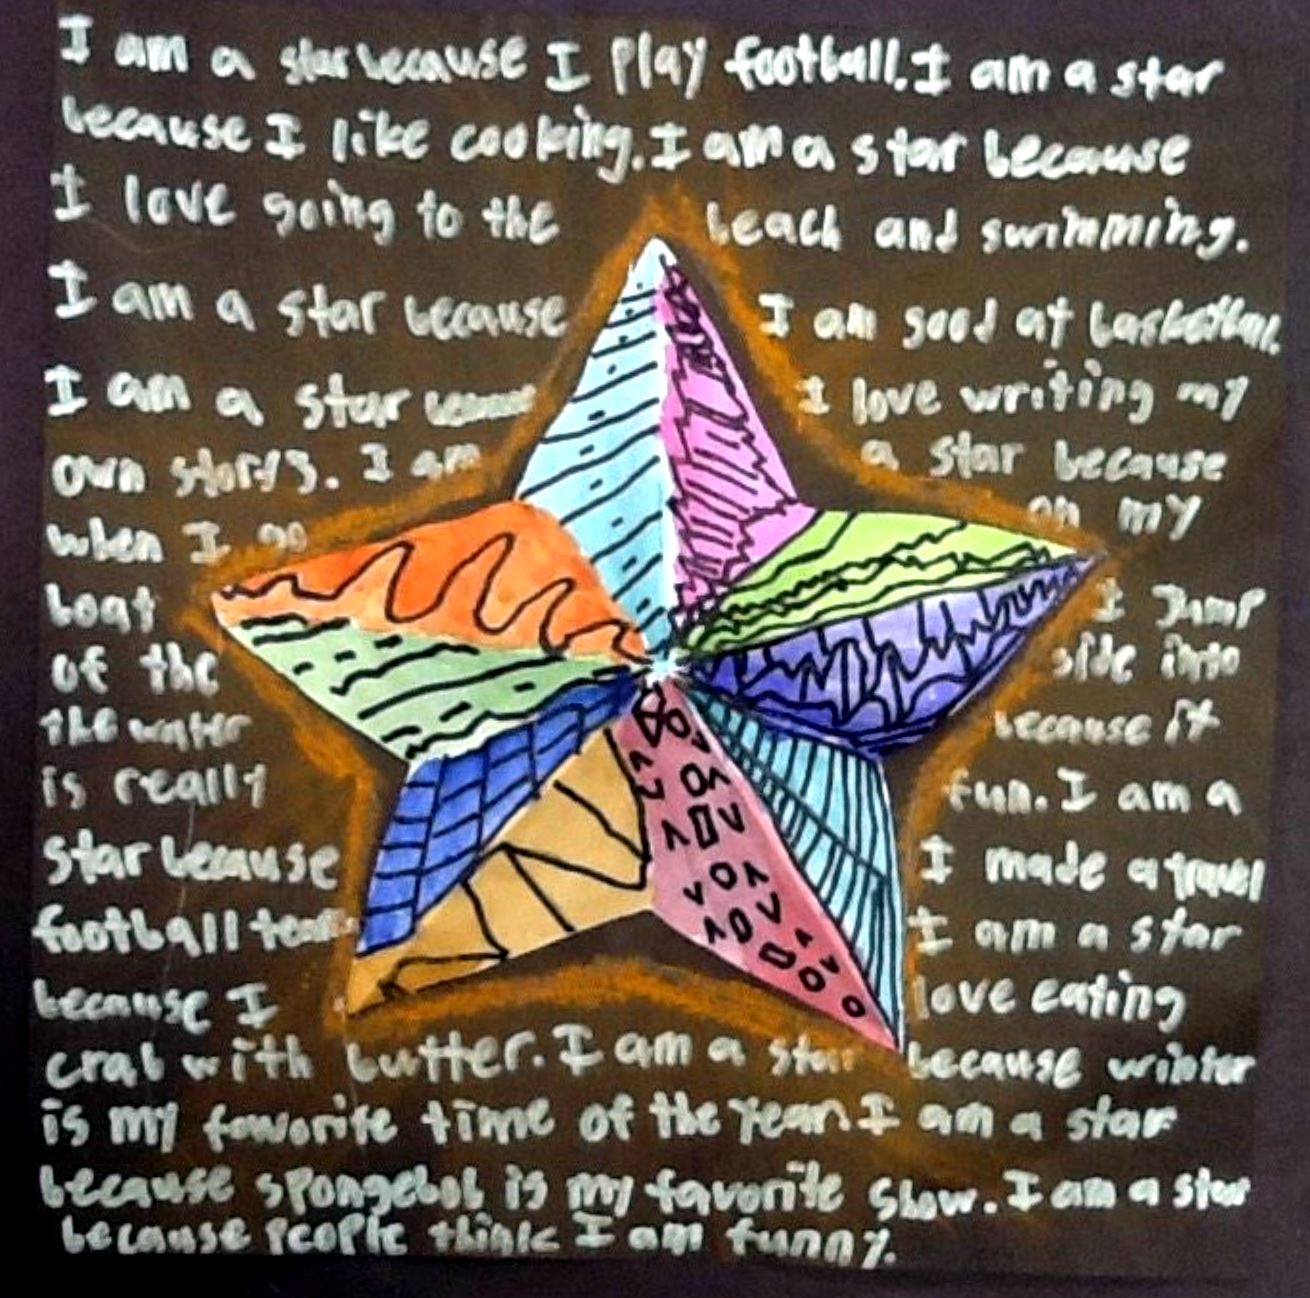 I am a star because I play football. I am a star
because I like cooking. I am a star because
I love going to the beach and swimming.
I am a star because I am good at basketball.
I am a star because I love writing my
own storys. I am a star because
when I go on my
boat I Jump
of the side into
the water because it
is really fun. I am a
star because I made a travel
football team I am a star
because I love eating
crab with butter. I am a star because winter
is my favorite time of the year. I am a star
because spongebob is my favorite show. I am a star
because people think I am funny.